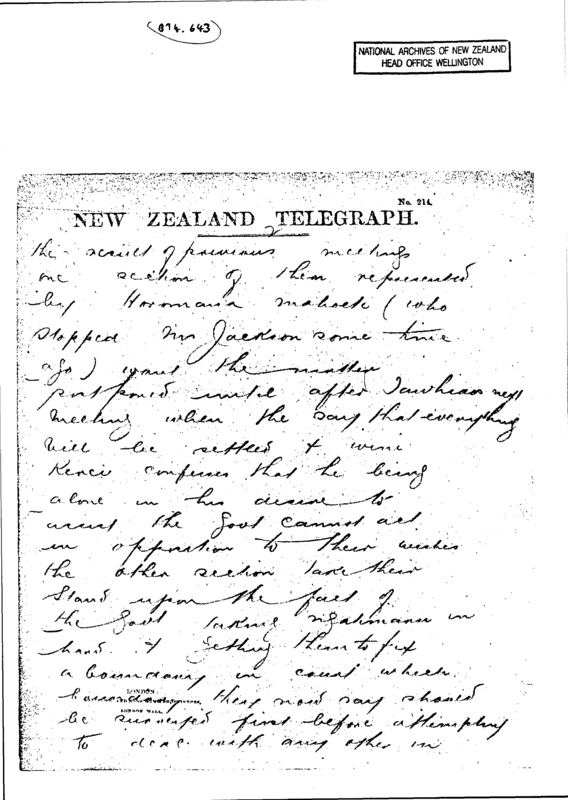 874.643
NATIONAL ARCHIVES OF NEW ZEALAND
HEAD OFFICE WELLINGTON
No. 214.
NEW ZEALAND TELEGRAPH.
2
the result of previous meetings
one section of them represented
by (who
stopped Mr Jackson some time
ago) want the matter
postponed until after Tawhiaos next
meeting when the say that everything
will be settled & Wini
Kerei confesses that he being
alone in his desire to
assist the Govt cannot act
in opposition to their wishes
the other section take their
stand upon the fact of
the Govt taking Ngatimaru in
hand & getting them to fix
a boundary in court which
LONDON
boundary they now say should
be surveyed first before attempting
to deal with any other in